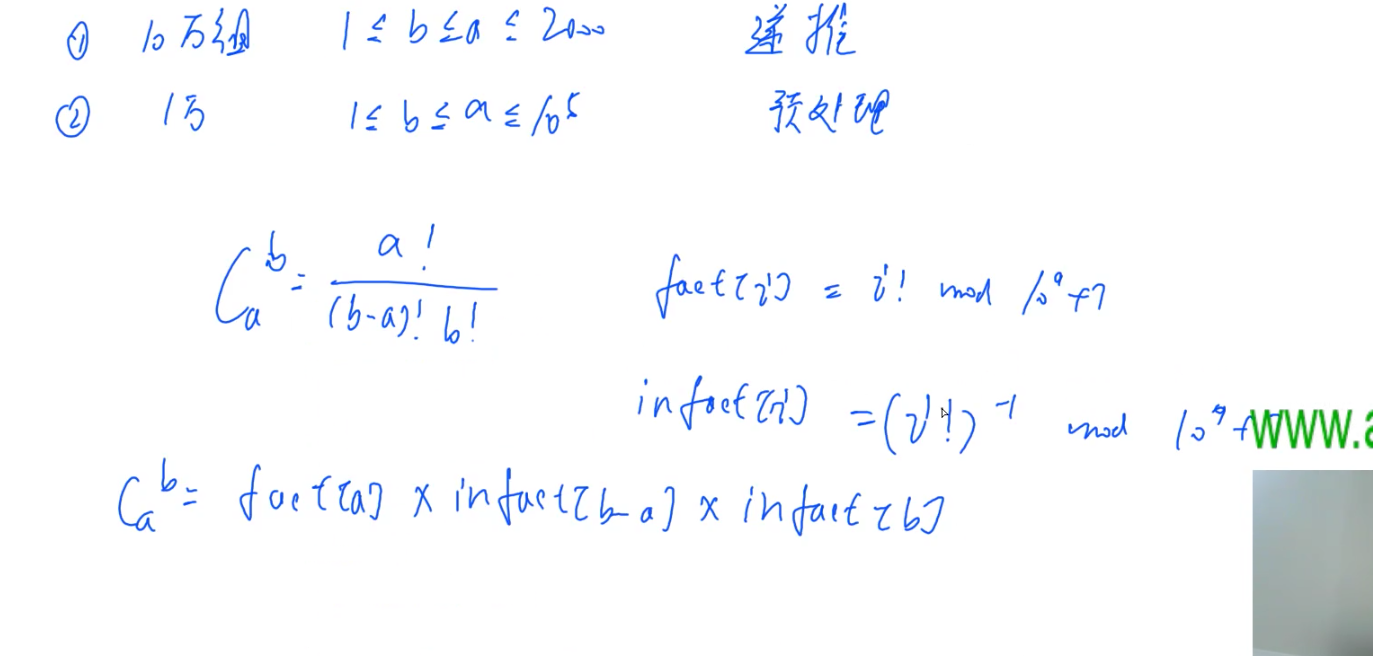 ① 10万组 1 ≤ b ≤ a ≤ 2000 递推
② 1万 1 ≤ b ≤ a ≤ 10^5 预处理
C_a^b = a! / (b-a)! b!
fact[i] = i! mod 10^9+7
infact[i] = (i!)^-1 mod 10^9+7
www.a
C_a^b = fact[a] x infact[b-a] x infact[b]